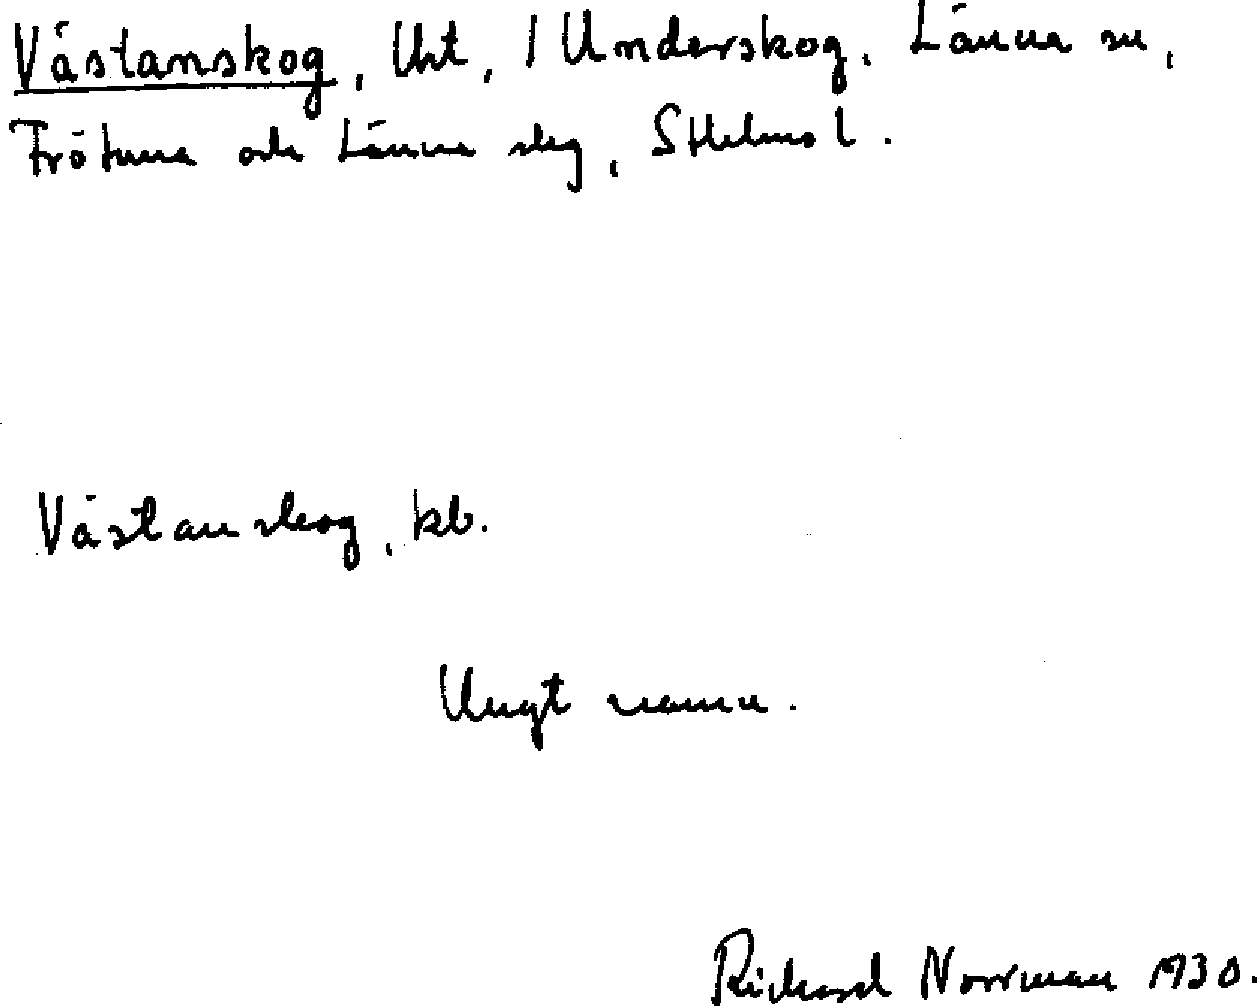 Västanskog, lht, / Underskog, Länna sn,
Frötuna och Länna skg, Sthlms l.
Västanskog, kb.
Ungt namn.
Richard Norrman 1930.